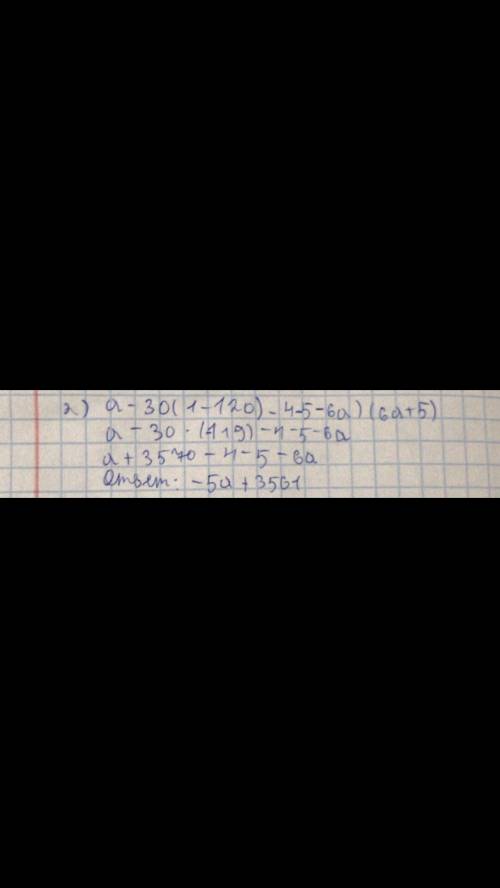 2) a - 30(1-120) - 4-5-6a) (6a+5)
a - 30 · (119) - 4 - 5 - 6a
a + 3570 - 4 - 5 - 6a
Ответ: -5a + 3561